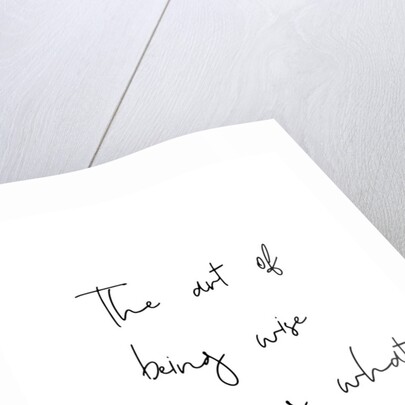 The art of
being wise
what